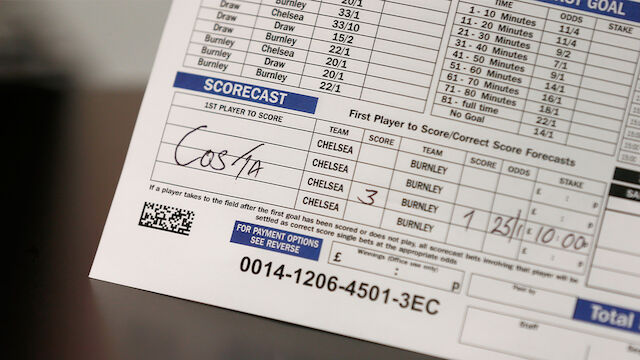 GOAL
TIME ODDS STAKE
1 - 10 Minutes 11/4
11 - 20 Minutes 11/4
21 - 30 Minutes 9/2
31 - 40 Minutes 7/1
41 - 50 Minutes 9/1
51 - 60 Minutes 14/1
61 - 70 Minutes 16/1
71 - 80 Minutes 18/1
81 - full time 22/1
No Goal 14/1
Draw Chelsea 33/10
Draw Draw 33/10
Draw Burnley 15/2
Burnley Chelsea 22/1
Burnley Draw 20/1
Burnley Burnley
20/1
22/1
SCORECAST
First Player to Score/Correct Score Forecasts
1ST PLAYER TO SCORE TEAM SCORE TEAM SCORE ODDS STAKE
CHELSEA BURNLEY £ : p
Costa CHELSEA BURNLEY £ : p
CHELSEA 3 BURNLEY 1 25/1 £ 10:00 p
CHELSEA BURNLEY
If a player takes to the field after the first goal has been scored or does not play, all scorecast bets involving that player will be
settled as correct score single bets at the appropriate odds
FOR PAYMENT OPTIONS
SEE REVERSE
£ Winnings (Office use only) : p
0014-1206-4501-3EC
Paid to
Staff
Total